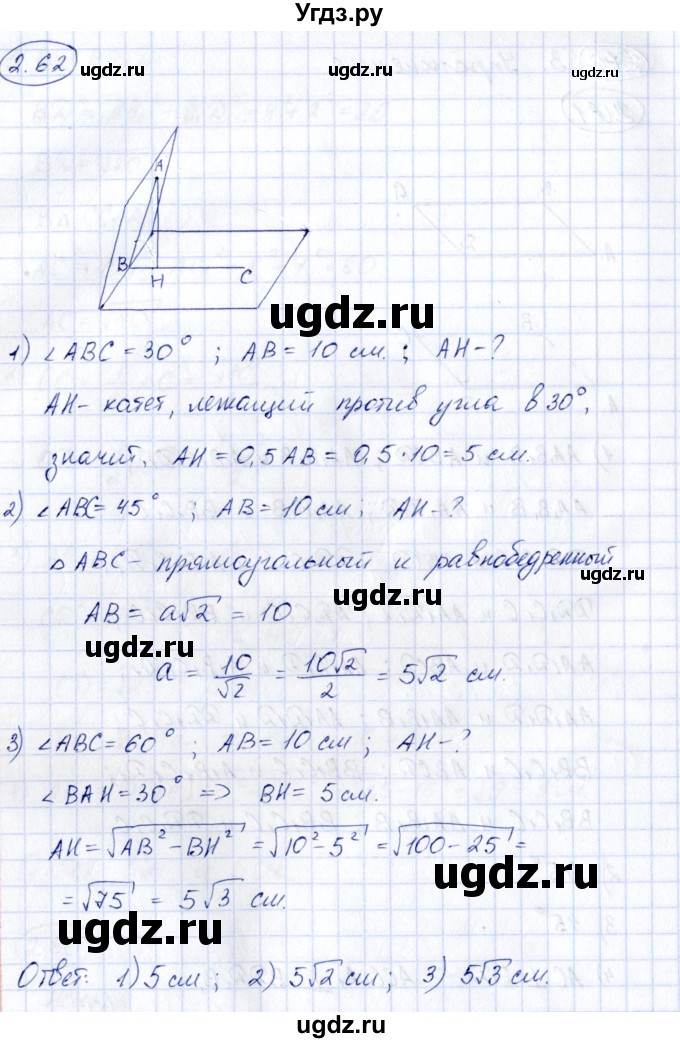 Угдз.ру
2.62
ugdz.ru ugdz.ru ugdz.ru
A
B
H
C
ugdz.ru
1) ∠ABC = 30° ; AB = 10 см. ; AH - ?
AH - катет, лежащий против угла в 30°,
значит, AH = 0,5 AB = 0,5 · 10 = 5 см.
ugdz.ru
2) ∠ABC = 45° ; AB = 10 см ; AH - ?
△ABC - прямоугольный и равнобедренный
ugdz.ru
ugdz.ru
AB = a√2 = 10
ugdz.ru
a = 10/√2 = 10√2/2 = 5√2 см.
3) ∠ABC = 60° ; AB = 10 см ; AH - ?
∠BAH = 30° => BH = 5 см.
AH = √(AB² - BH²) = √(10² - 5²) = √(100 - 25) =
ugdz.ru
= √75 = 5√3 см.
ugdz.ru
Ответ: 1) 5 см ; 2) 5√2 см ; 3) 5√3 см.
ugdz.ru ugdz.ru
ugdz.ru